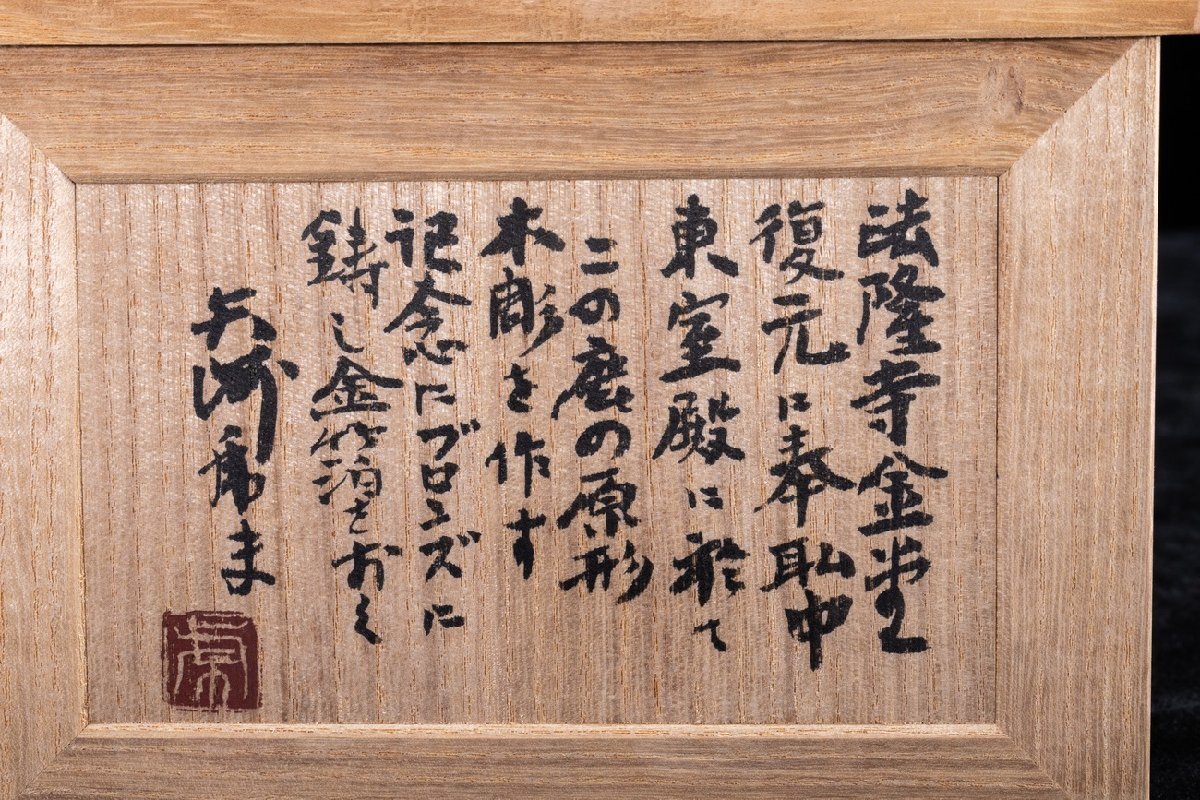 法隆寺金堂
復元に奉耺中
東室殿に於て
この鹿の原形
木彫を作す
記念にブロンズに
鋳し金箔をおく